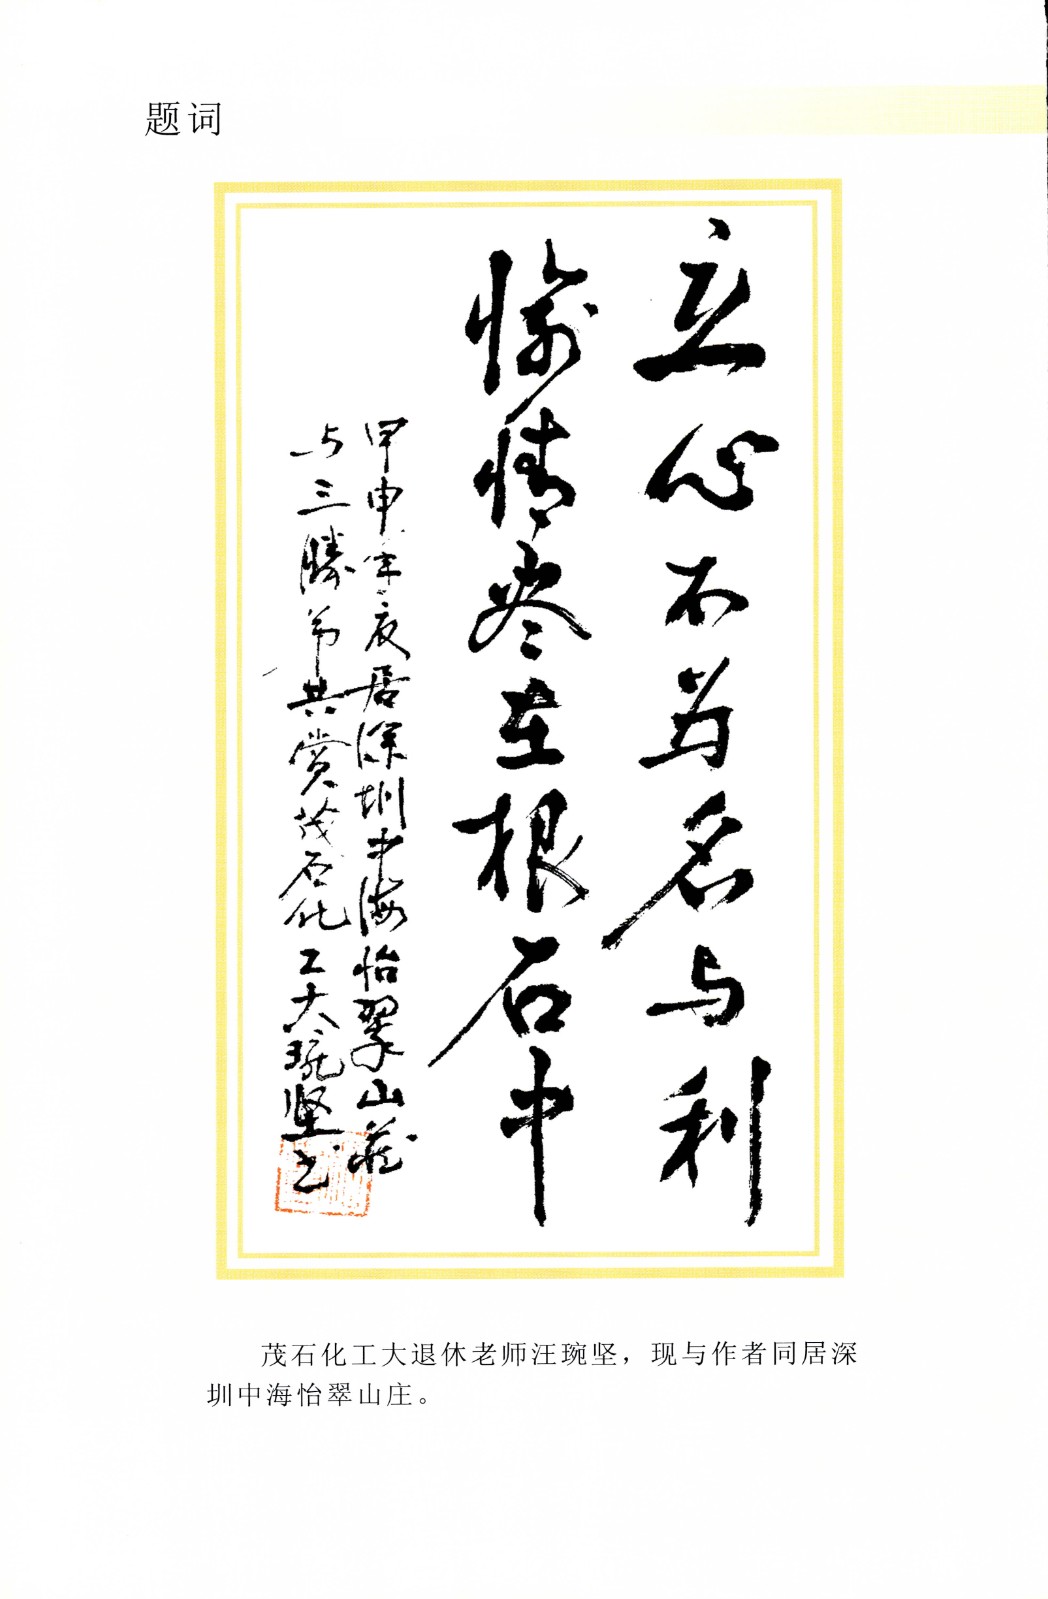 题词
立心不为名与利
愉情尽在根石中
甲申年夜居深圳中海怡翠山庄
与三勝弟共赏茂石化工大琬坚书
茂石化工大退休老师汪琬坚，现与作者同居深
圳中海怡翠山庄。